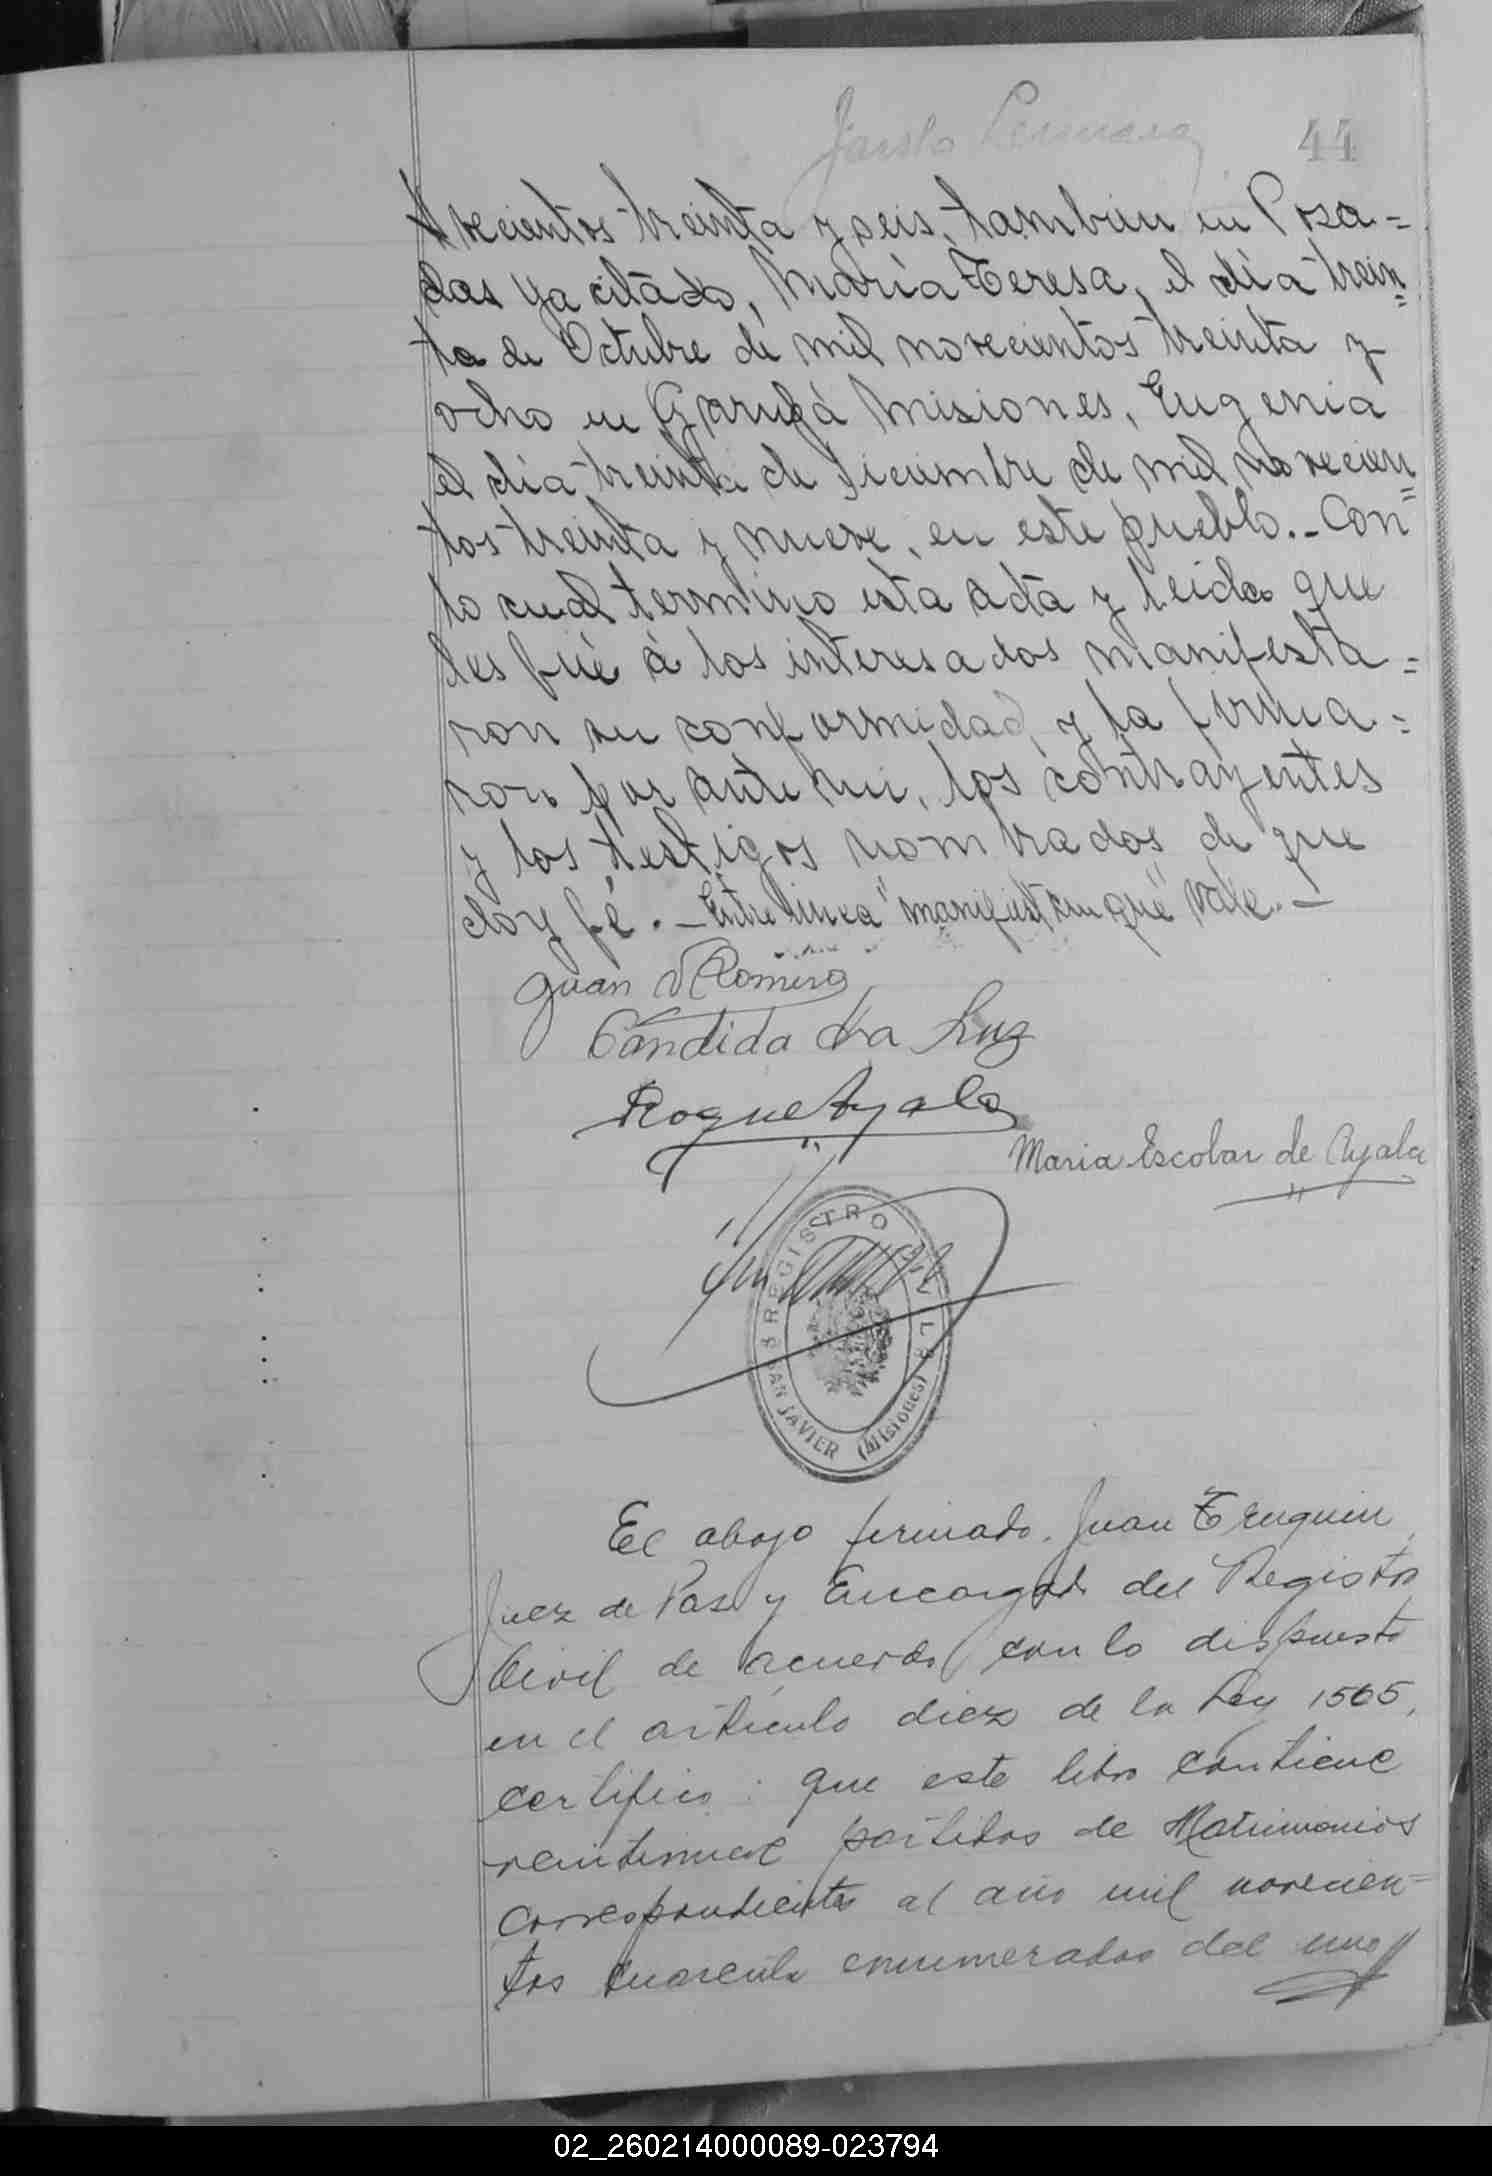 44
vecientos treinta y seis, tambien en Posa=
das ya citado, María Teresa, el día trein=
ta de Octubre de mil novecientos treinta y
ocho en Garupá Misiones, Eugenia
el día treinta de Diciembre de mil novecien=
tos treinta y nueve, en este pueblo.- Con
lo cual termino esta acta y leida que
les fué á los interesados manifesta=
ron su conformidad, y la firma=
ron por ante mi, los contrayentes
y los testigos nombrados de que
doy fé.- Entre linea "manifiestan que" Vale.-
Juan Romero
Candida La Luz
Roque Ayala
Maria Escobar de Ayala
REGISTRO CIVIL
SAN JAVIER (Misiones)
El abajo firmado, Juan
Juez de Paz y Encargado del Registro
Civil de acuerdo con lo dispuesto
en el artículo diez de la Ley 1565,
certifico: que este libro contiene
veintinueve partidas de Matrimonios
correspondientes al año mil novecien=
tos cuarenta enumerados del uno
02_260214000089-023794